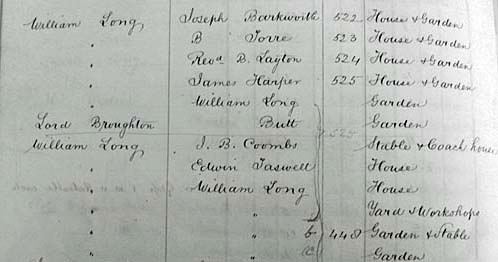 William Long Joseph Barkworth 522 House & Garden
" B Torre 523 House & Garden
" Revd B. Layton 524 House & Garden
" James Harper 525 House & Garden
" William Long Garden
Lord Broughton Butt Garden
William Long J. B. Coombs 525 Stable & Coach house
" Edwin Taswell House
" William Long House
" " Yard & Workshops
" " b 448 Garden & Stable
" " a Garden